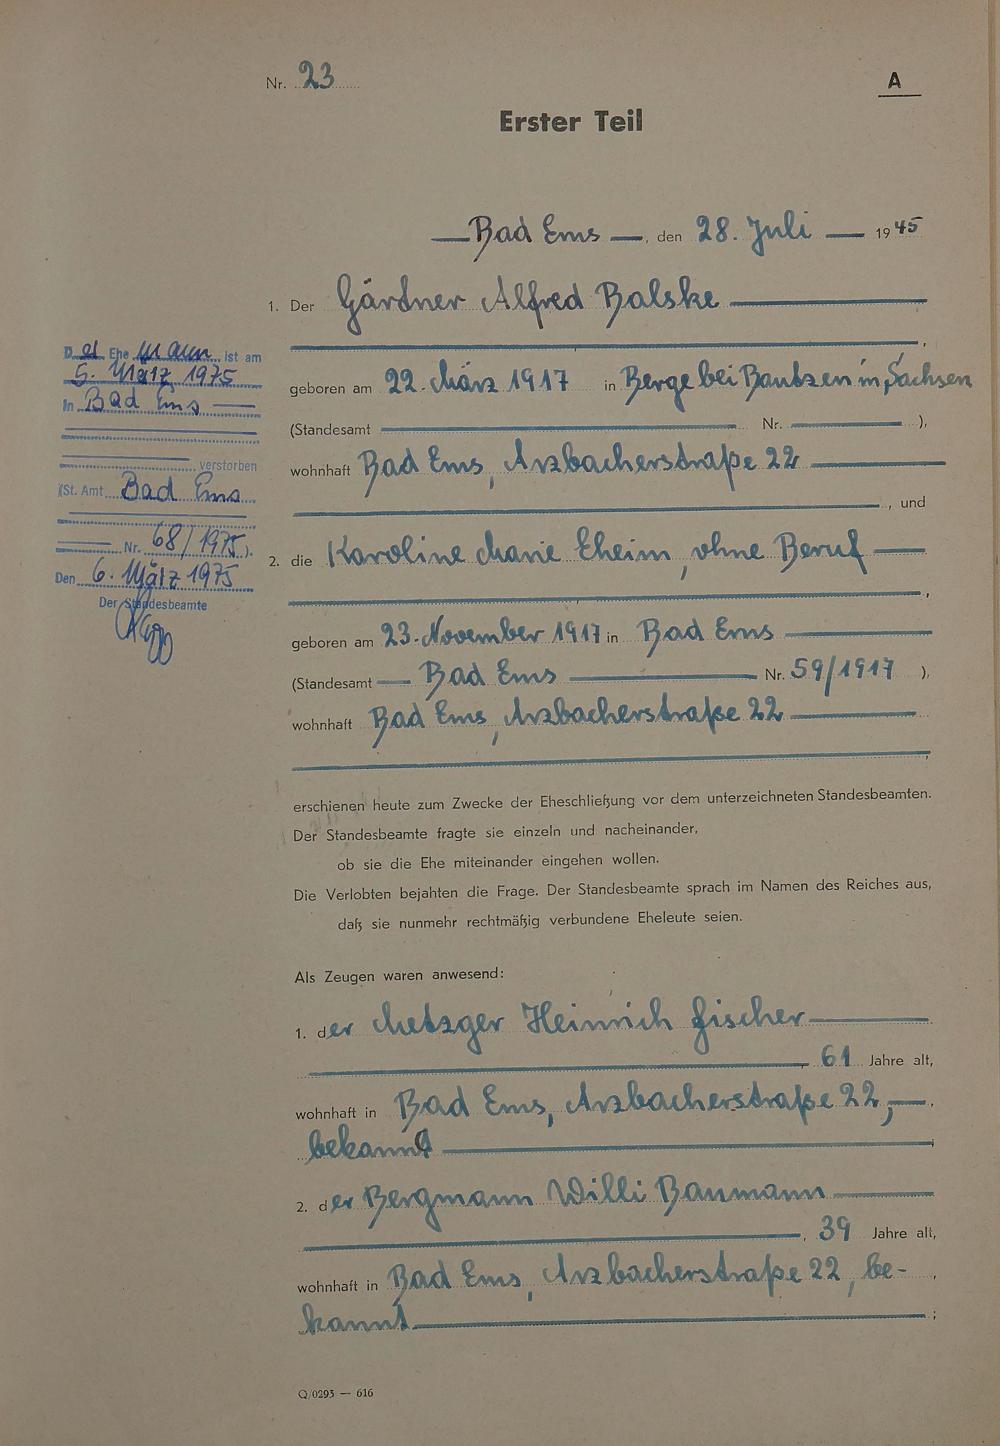 Nr. 23
A
Erster Teil
Bad Ems, den 28. Juli 1945
1. Der Gärdner Alfred Balske
,
geboren am 22. März 1917 in Berge bei Bautzen in Sachsen
(Standesamt Nr. ),
wohnhaft Bad Ems, Arzbacherstraße 22
, und
2. die Karoline Marie Eheim, ohne Beruf
,
geboren am 23. November 1917 in Bad Ems
(Standesamt Bad Ems Nr. 59/1917 ),
wohnhaft Bad Ems, Arzbacherstraße 22
,
erschienen heute zum Zwecke der Eheschließung vor dem unterzeichneten Standesbeamten.
Der Standesbeamte fragte sie einzeln und nacheinander,
ob sie die Ehe miteinander eingehen wollen.
Die Verlobten bejahten die Frage. Der Standesbeamte sprach im Namen des Reiches aus,
daß sie nunmehr rechtmäßig verbundene Eheleute seien.
Als Zeugen waren anwesend:
1. der Metzger Heinrich Fischer
61 Jahre alt,
wohnhaft in Bad Ems, Arzbacherstraße 22,
bekannt ;
2. der Bergmann Willi Baumann
, 39 Jahre alt,
wohnhaft in Bad Ems, Arzbacherstraße 22, be-
kannt ;
Q/0293 — 616
Der Ehemann ist am
5. März 1975
in Bad Ems
verstorben
(St. Amt Bad Ems
Nr. 68/1975).
Den 6. März 1975
Der Standesbeamte